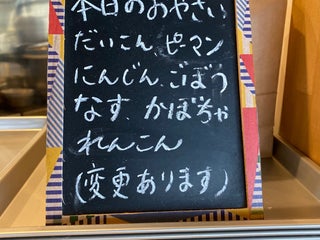 本日のおやさい
だいこん、ピーマン
にんじん、ごぼう
なす、かぼちゃ
れんこん
(変更あります)